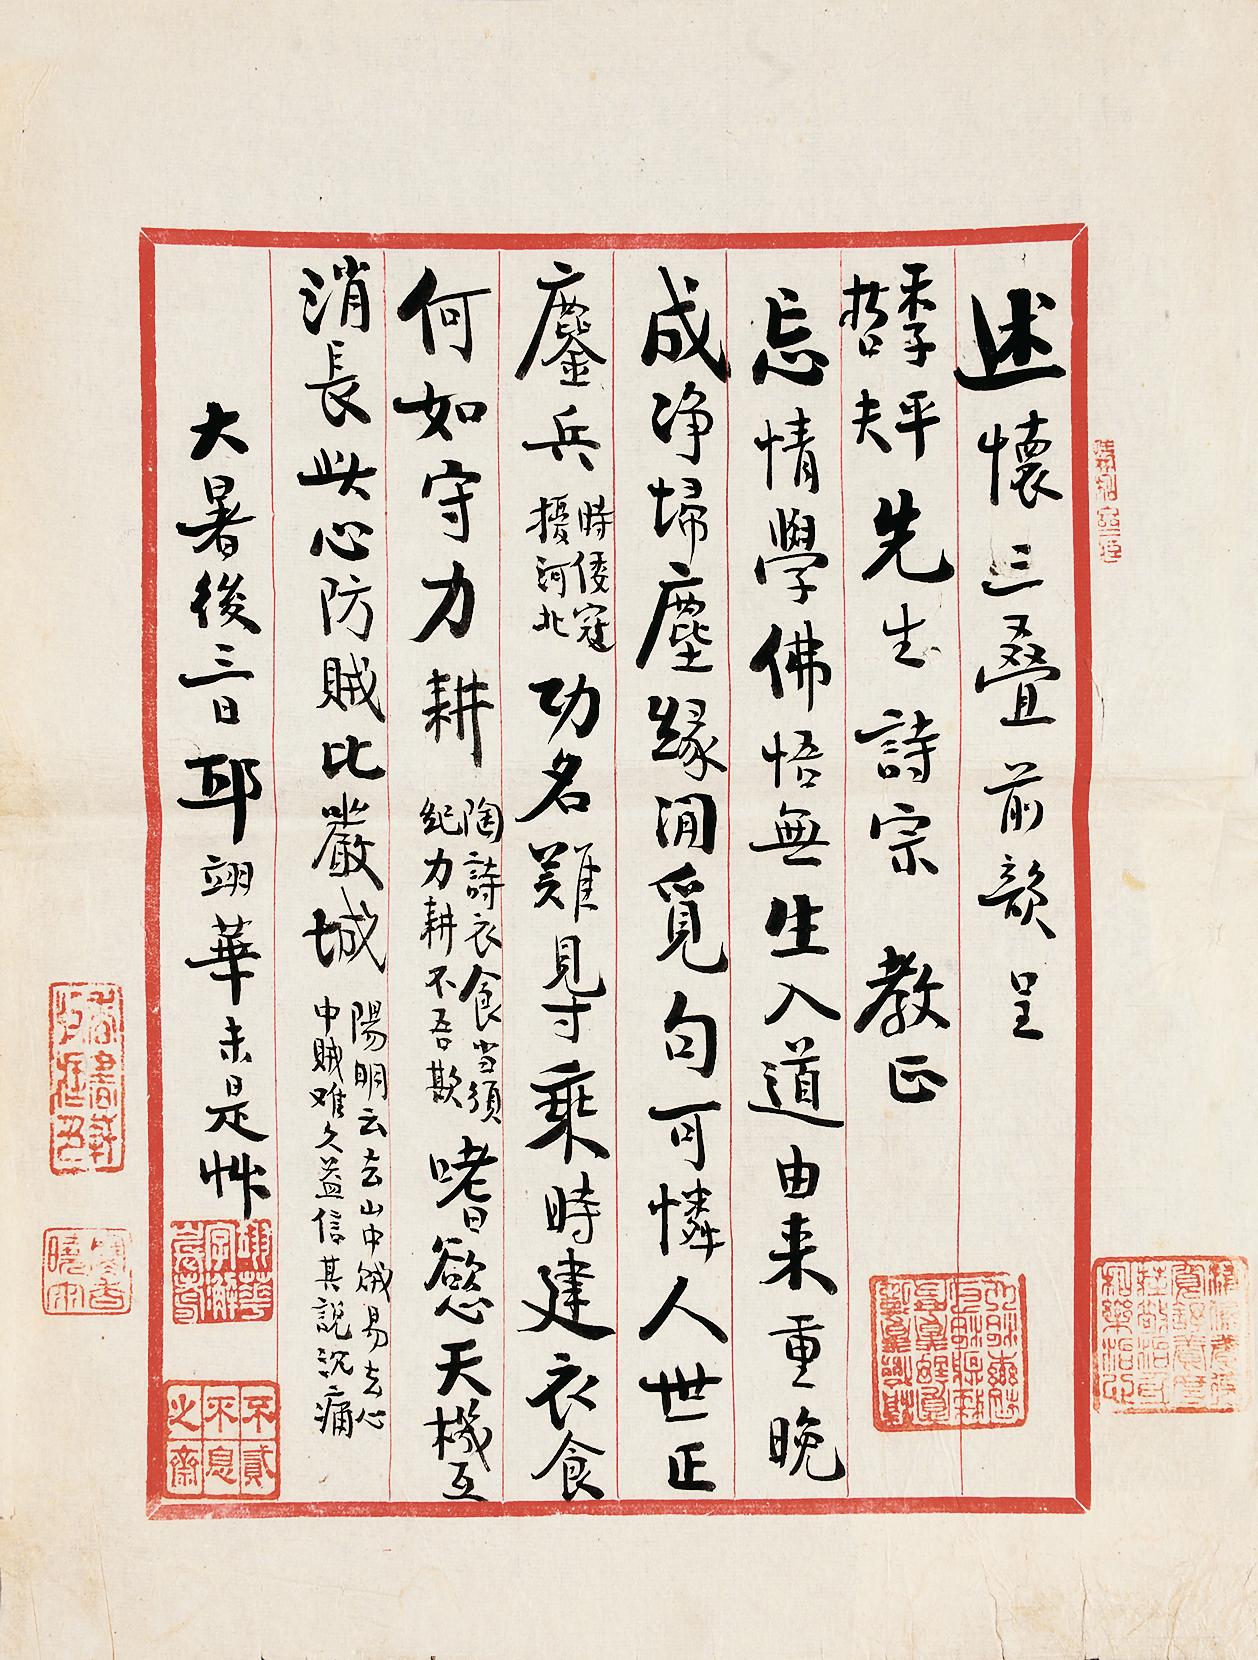 述懷三叠前韻呈
季平
哲夫
先生詩宗 教正
忘情學佛悟無生入道由来重晚
成净埽塵緣閒覓句可憐人世正
鏖兵
時倭寇
擾河北
功名難㝵乘時建衣食
何如守力耕
陶詩衣食当須
紀力耕不吾欺
嗜慾天機互
消長此心防賊比嚴城
陽明云去山中贼易去心
中賊难久益信其說沉痛
大暑後三日邱翊華未是艸
不貳不息之齋